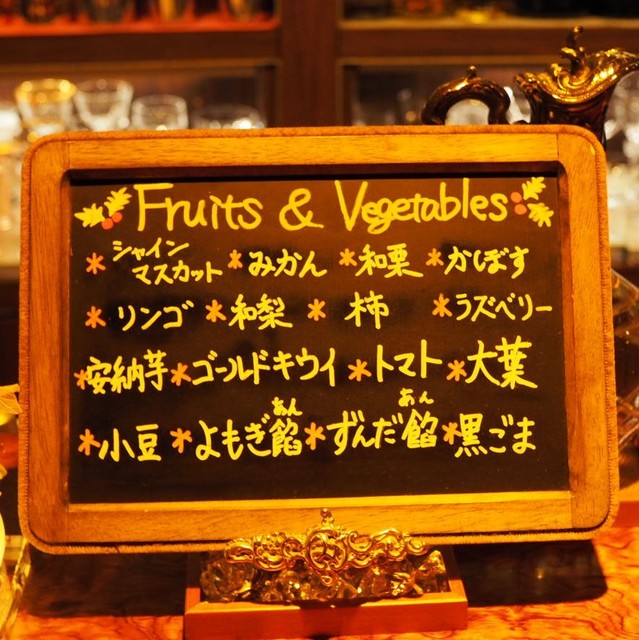 Fruits & Vegetables
*シャインマスカット *みかん *和栗 *かぼす
*リンゴ *和梨 *柿 *ラズベリー
*安納芋 *ゴールドキウイ *トマト *大葉
*小豆 *よもぎ餡(あん) *ずんだ餡(あん) *黒ごま